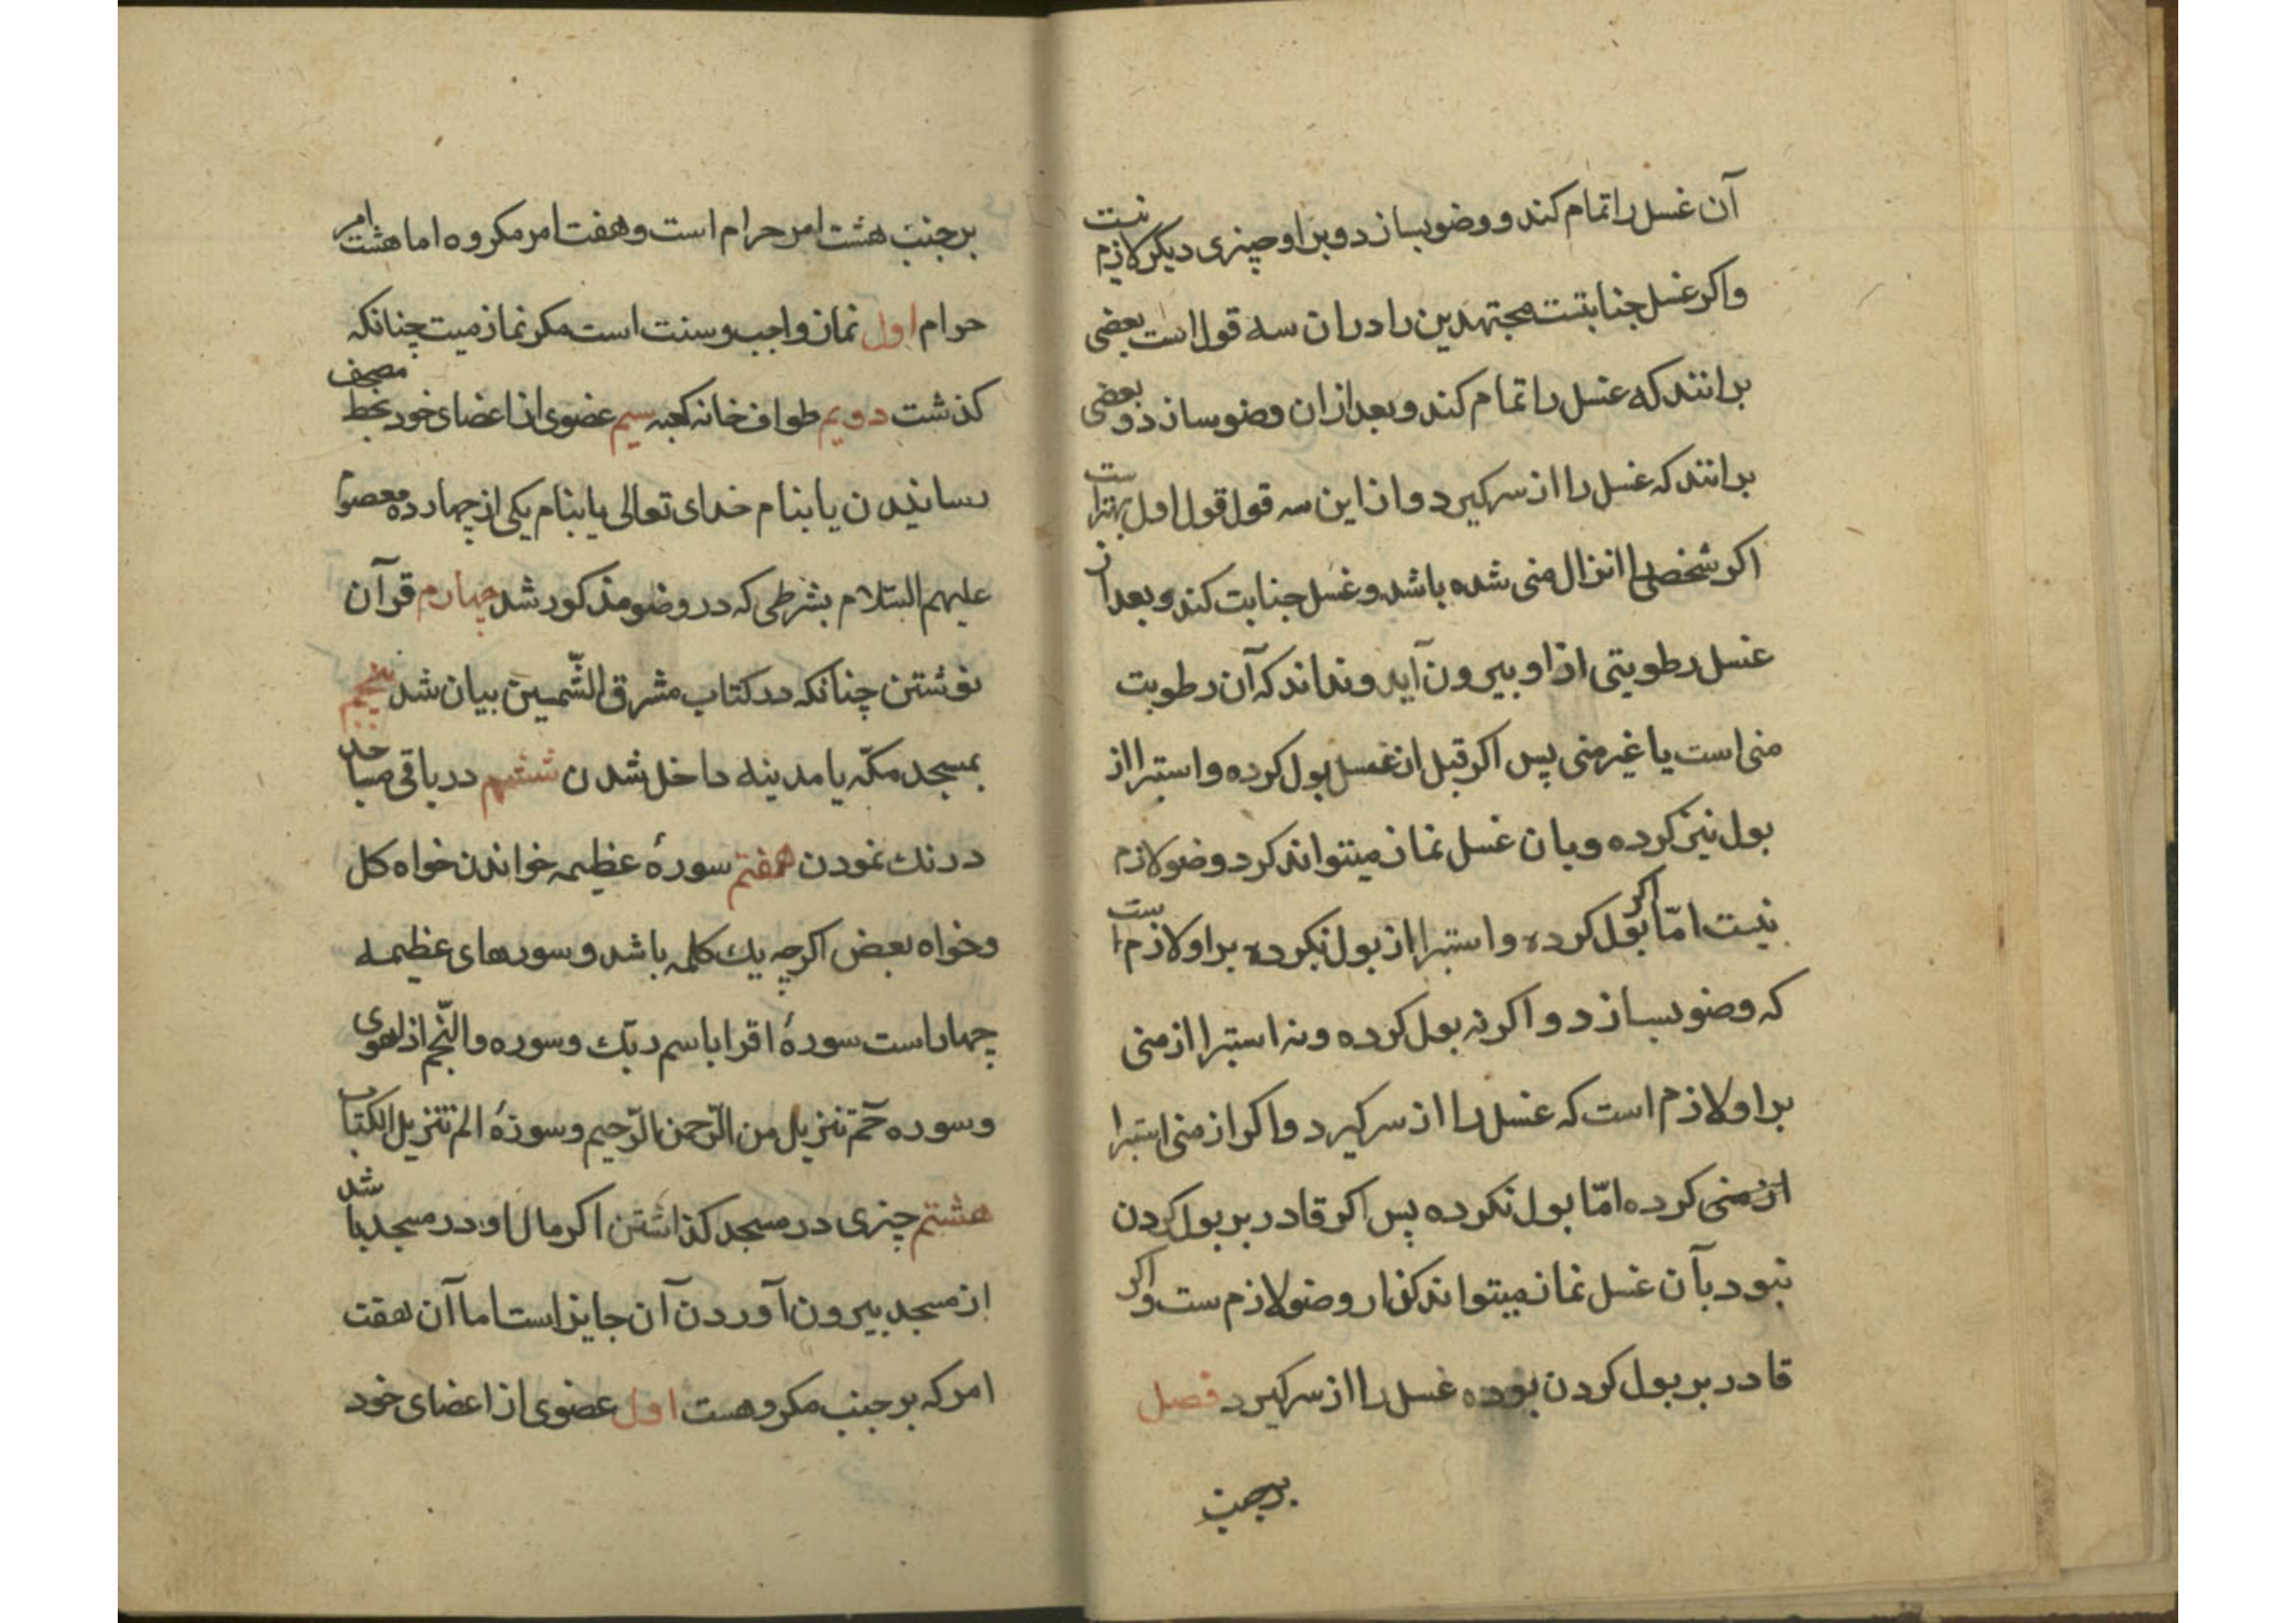 آن غسل را تمام کند و وضو بسازد و بر او چیزی دیکر لازم نیست
واکر غسل جنابتست مجتهدین را در ان سه قول است بعضی
برانند که غسل را تمام کند و بعد از ان وضو سازد و بعضی
برانند که غسل را از سر کیرد و از این سه قول قول اول بهتر است
اکر شخصی را انزال منی شده باشد و غسل جنابت کند و بعد از
غسل رطوبتی از او بیرون آید و نداند که آن رطوبت
منی است یا غیر منی پس اکر قبل از غسل بول کرده و استبرا از
بول نیز کرده و بان غسل نماز میتواند کرد وضو لازم
نیست امّا اکر بول کرده و استبرا از بول نکرده بر او لازم است
که وضو بسازد و اکر نه بول کرده و نه استبرا از منی
بر او لازم است که غسل را از سر کیرد و اکر از منی استبرا
از منی کرده امّا بول نکرده پس اکر قادر بر بول کردن
نبود بآن غسل نماز میتواند کذارد وضو لازم ست و اکر
قادر بر بول کردن بوده غسل را از سر کیرد فصل
بر جنب
بر جنب هشت امر حرام است و هفت امر مکروه اما هشت امر
حرام اول نماز واجب و سنت است مکر نماز میت چنانکه
کذشت دویم طواف خانه کعبه سیم عضوی از اعضای خود بخط مصحف
رسانیدن یا بنام خدای تعالی یا بنام یکی از چهارده معصوم
علیهم السّلام بشرطی که در وضو مذکور شد چهارم قرآن
نوشتن چنانکه در کتاب مشرق الشّمسین بیان شد پنجم
بمسجد مکّه یا مدینه داخل شدن ششم در باقی مساجد
درنك نمودن هفتم سورهٔ عظیمه خواندن خواه کل
و خواه بعض اکرچه یك کلمه باشد و سورهای عظیمه
چهار است سورهٔ اقرا باسم ربّك و سوره والنّجم اذا هوی
و سوره حٓم تنزیل من الرّحمن الرّحیم و سورهٔ الم تنزیل الکتاب
هشتم چیزی در مسجد کذاشتن اکر مال او در مسجد باشد
از مسجد بیرون آوردن آن جایز است اما آن هفت
امر که بر جنب مکروهست اول عضوی از اعضای خود